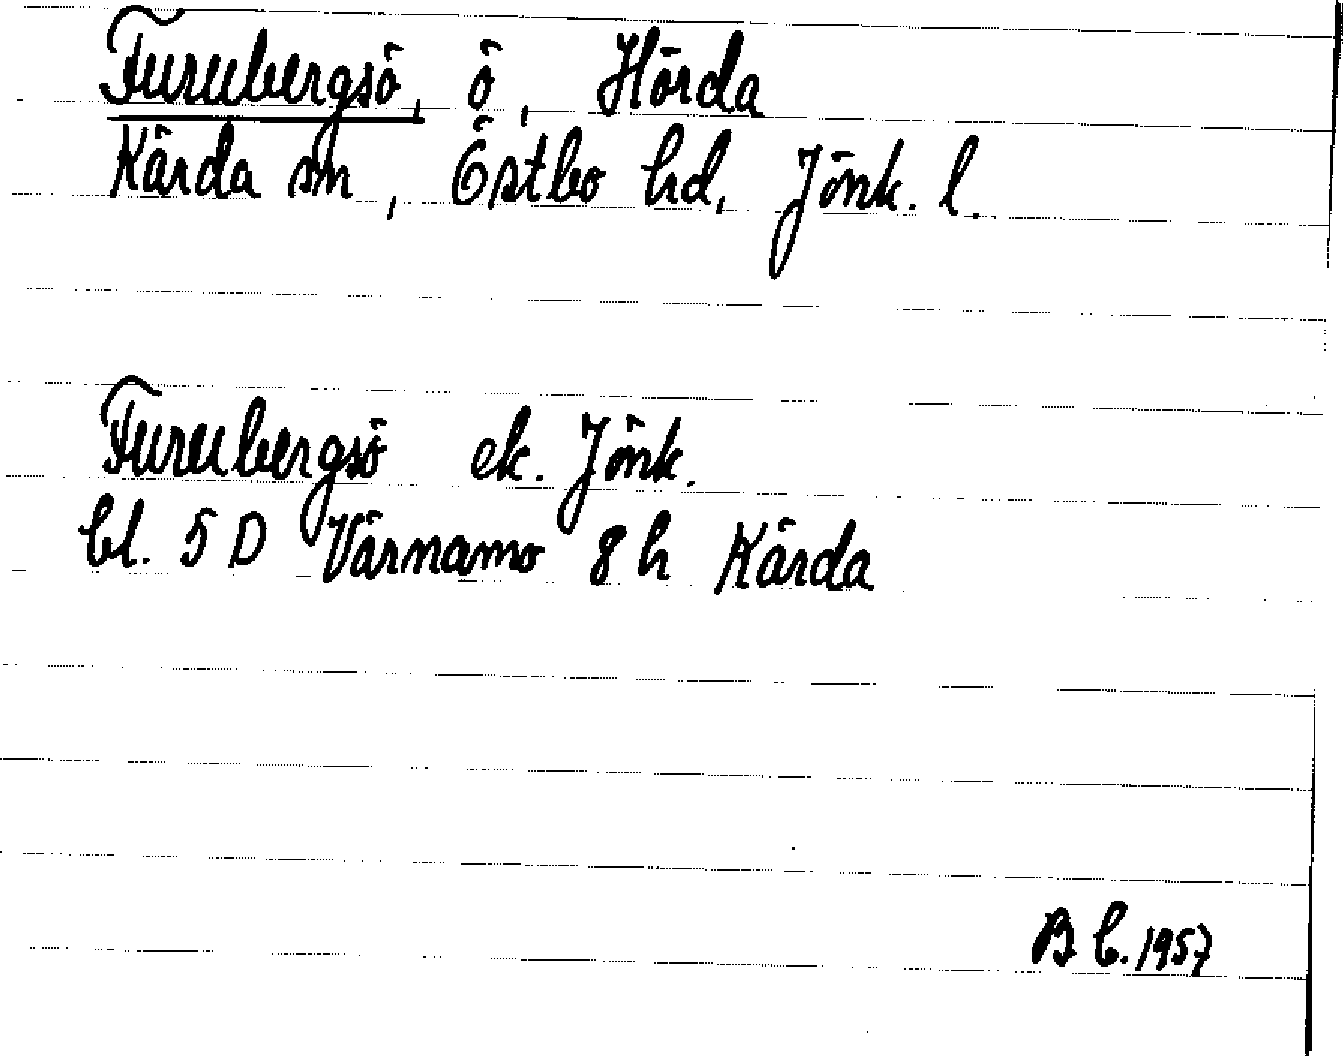 Furubergsö, ö, Hörda
Kärda sn, Östbo hd, Jönk. l.
Furubergsö ek. Jönk.
bl. 5 D Värnamo 8 h Kärda
B b. 1957